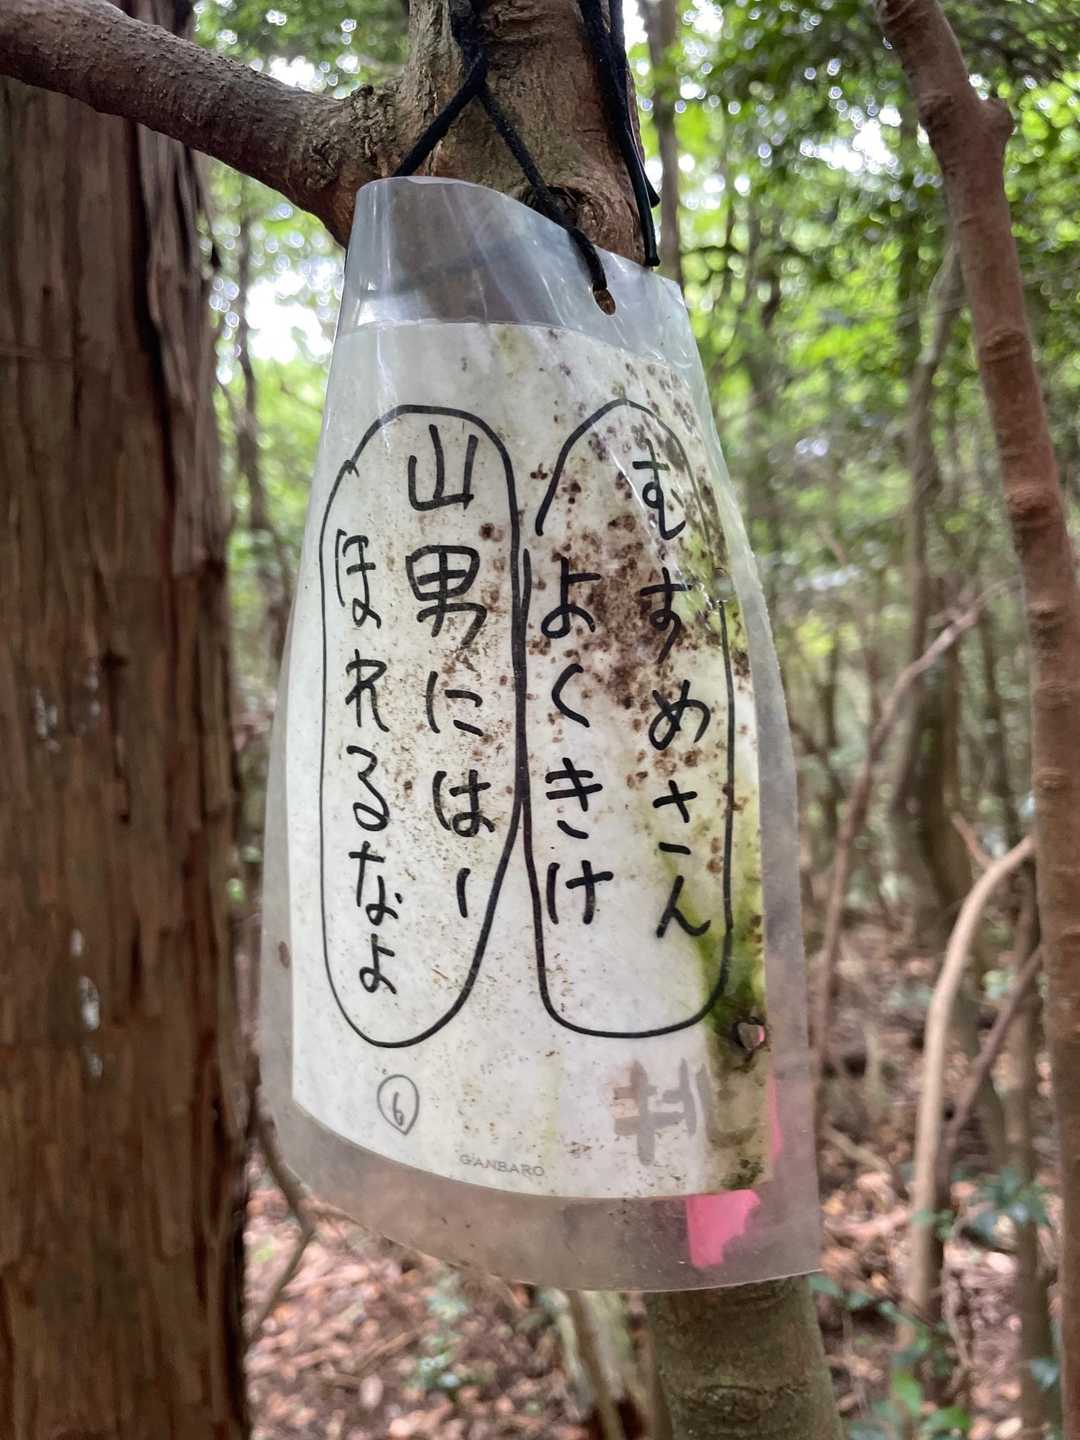 むすめさん
よくきけ
山男にはー
ほれるなよ
6
GANBARO